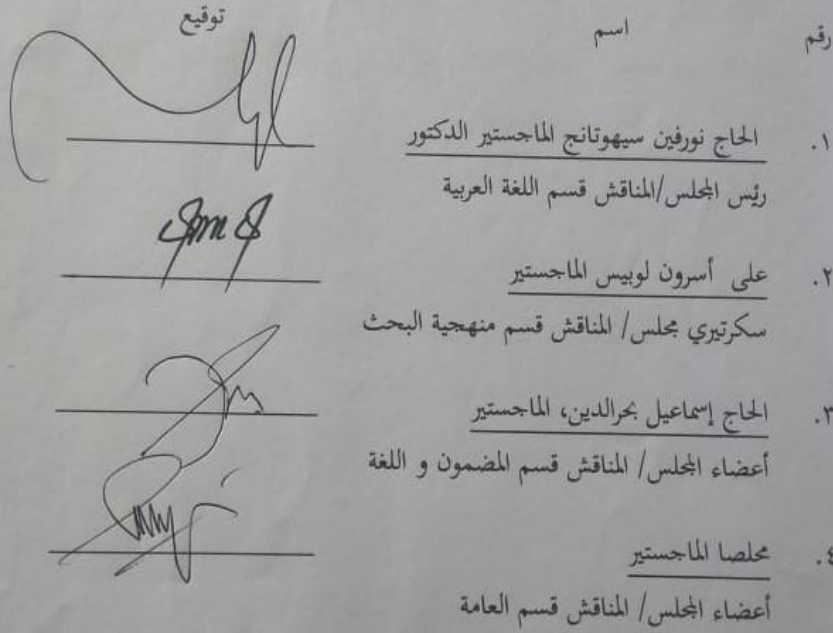 رقم اسم توقيع
١. الحاج نورفين سيهوتانج الماجستير الدكتور
رئس المجلس/المناقش قسم اللغة العربية
٢. على أسرون لوبيس الماجستير
سكرتيري مجلس/ المناقش قسم منهجية البحث
٣. الحاج إسماعيل بحرالدين، الماجستير
أعضاء المجلس/ المناقش قسم المضمون و اللغة
٤. مخلصا الماجستير
أعضاء المجلس/ المناقش قسم العامة